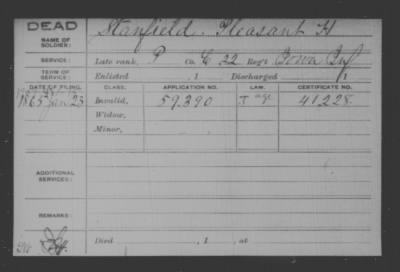 DEAD
NAME OF SOLDIER: Stanfield, Pleasant H
SERVICE: Late rank, P Co. C 22 Reg't Iowa Inf
TERM OF SERVICE: Enlisted , 1 Discharged , 1
DATE OF FILING. CLASS. APPLICATION NO. LAW. CERTIFICATE NO.
1865 Jan 23 Invalid, 59.390 41228
Widow,
Minor,
ADDITIONAL SERVICES:
REMARKS:
Died , 1 , at